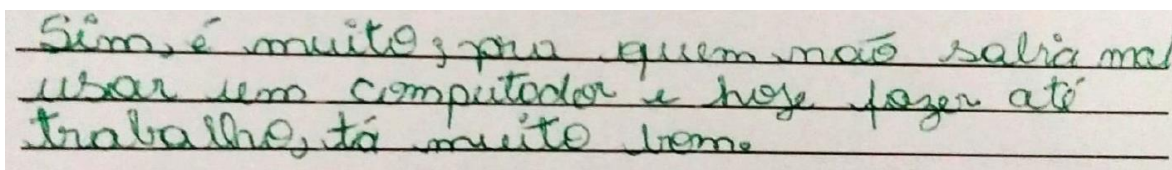 Sim, é muito, pra quem não sabia mal
usar um computador e hoje fazer até
trabalho, tá muito bem.